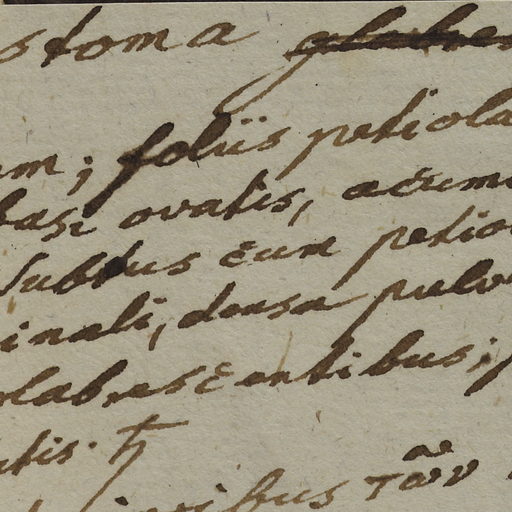 stoma glabres
em; foliis petiola
basi ovatis, acumi
subtus cum petio
inali, densa pulv
glabrescentibus;
atis. ♄
ibus τῶν